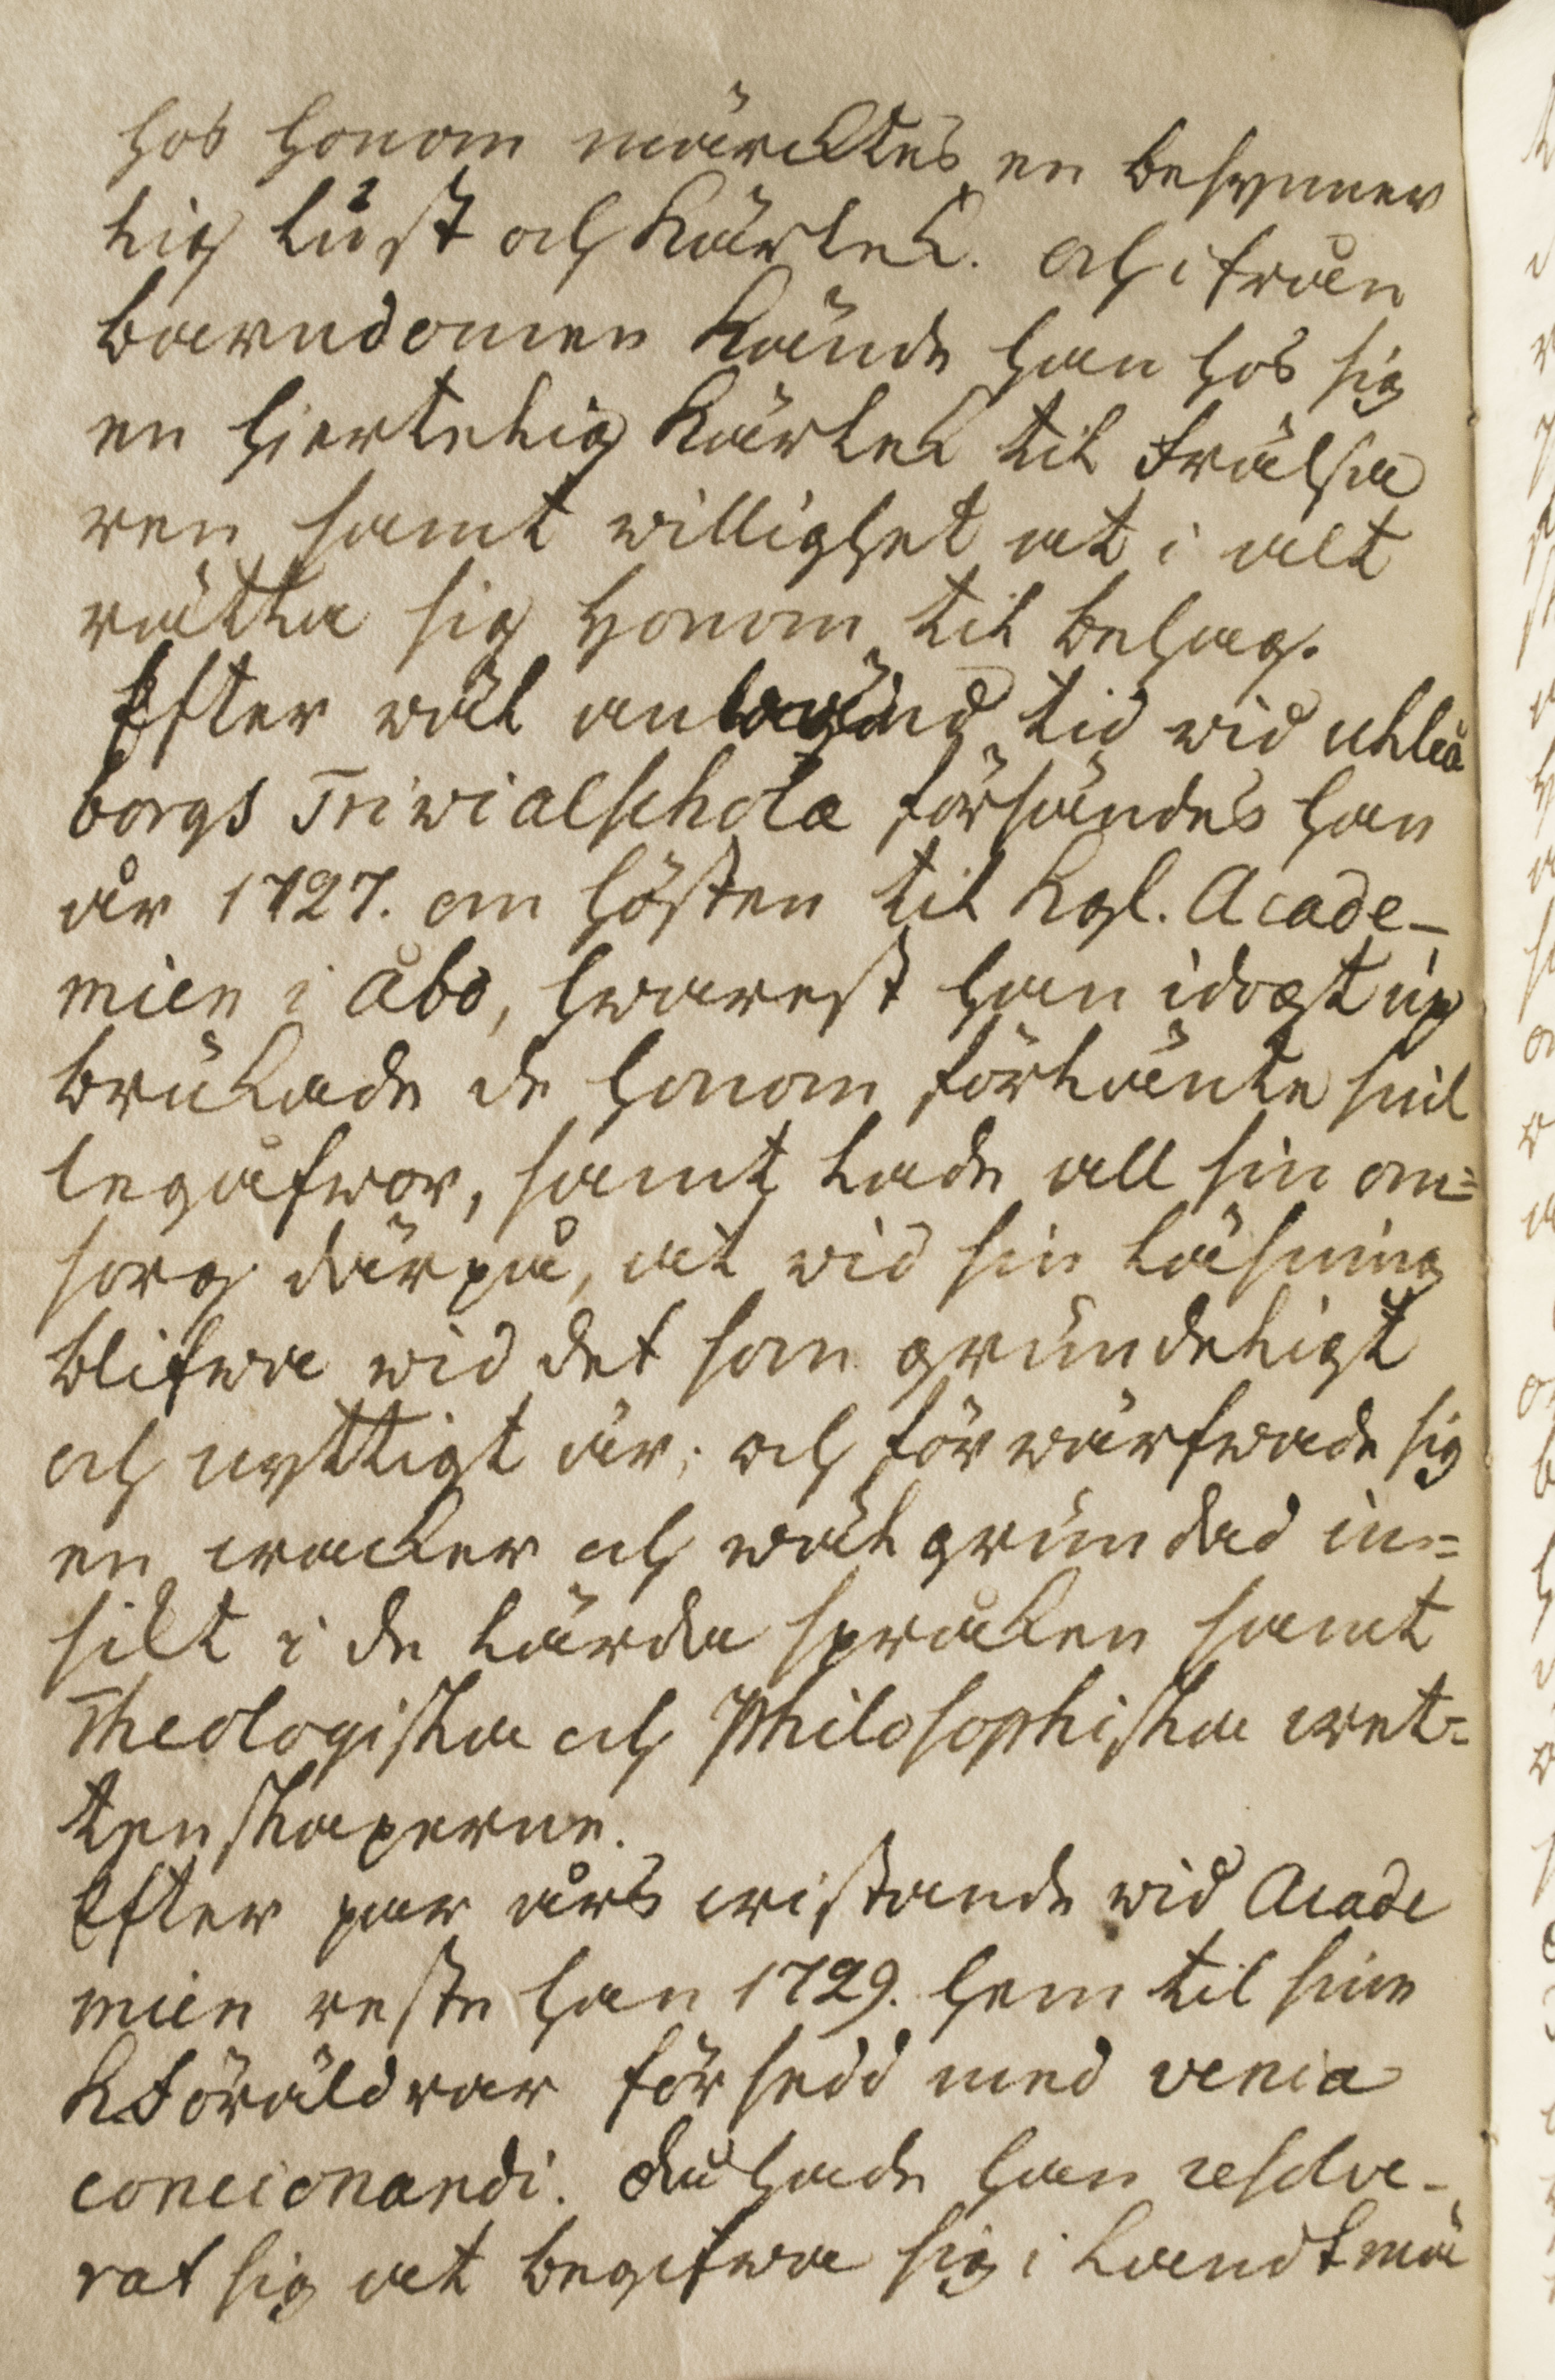 hos honom märcktes en besynner
lig lust och Kärlek. och ifrån
barndomen kände han hos sig
en hjertelig kärlek til Frälsa
ren samt willighet at i alt
rätta sig honom til behag.
Efter wäl anwänd tid wid uhleå
borgs Triwialschola försändes han
år 1727. om hösten til Kgl. Acade-
mien i Åbo, hwarest han idogt up
brukade de honom förlänte snil
legåfwor, samt lade all sin om=
sorg därpå, at wid sin läsning
blifwa wid det som grundeligt
och nyttigt är; och förwärfwade sig
en wacker och wälgrundad in=
sikt i de lärda språken samt
Theologiska och Philosophiska wet=
tenskaperne.
Efter par års wistande wid Acade
mien reste han 1729. hem til sina
K Föräldrar försedd med venia
concionandi. då hade han resolve-
rat sig at begifwa sig i Landtmä